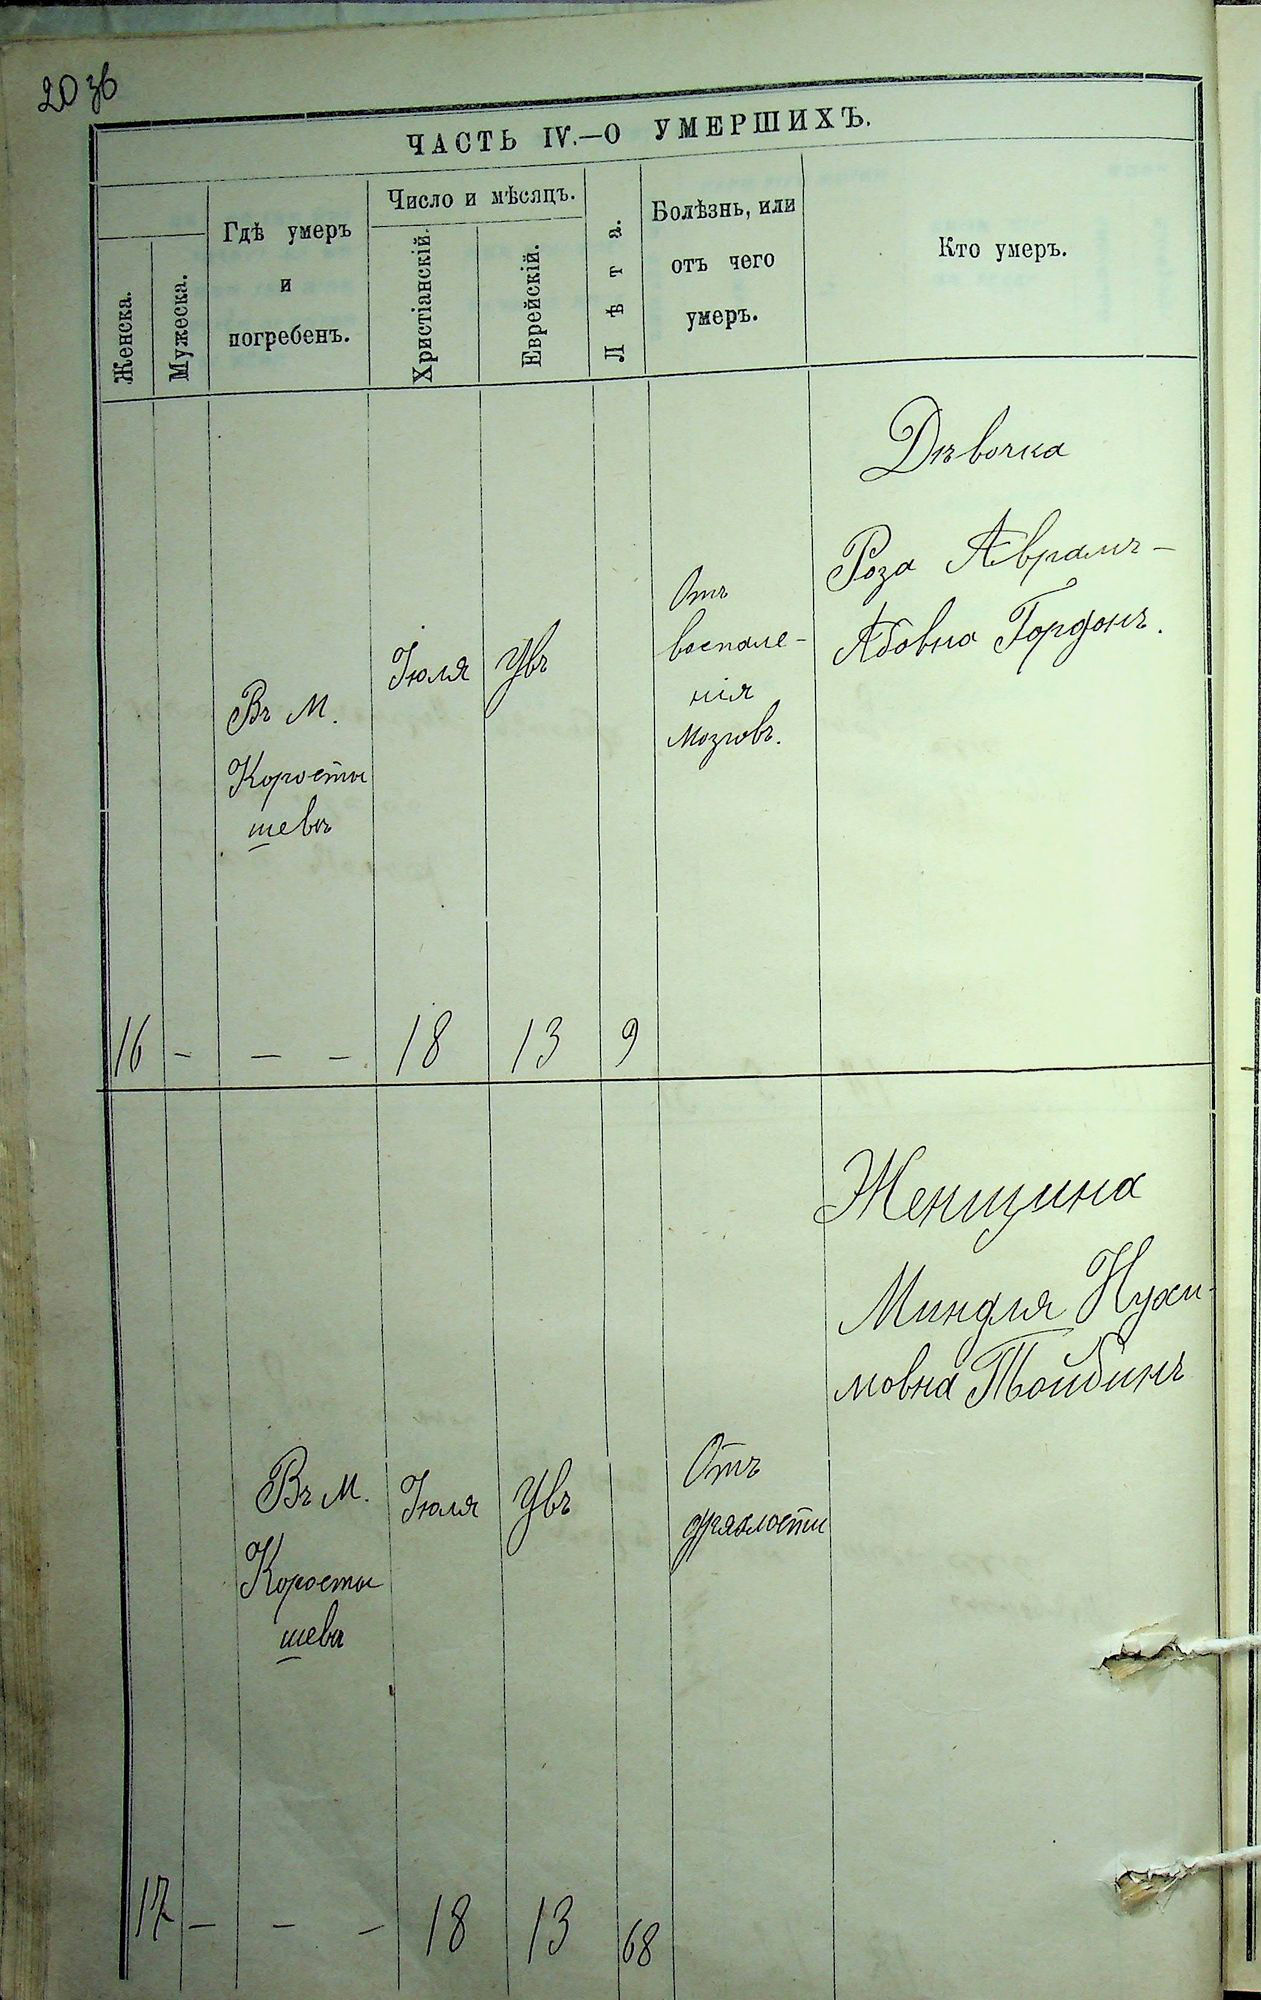 20 зв
ЧАСТЬ IV.—О УМЕРШИХЪ.
Женска.
Мужеска.
Гдѣ умеръ
и
погребенъ.
Число и мѣсяцъ.
Христіанскій.
Еврейскій.
Лѣта.
Болѣзнь, или
отъ чего
умеръ.
Кто умеръ.
16
-
Въ М.
Коросты
шевѣ
- -
Іюля
18
Увъ
13
9
Отъ
воспале-
нія
мозговъ.
Дѣвочка
Роза Аврамъ-
Абовна Гордонъ.
17
-
Въ М.
Коросты
шевѣ
- -
Іюля
18
Увъ
13
68
Отъ
дряхлости
Женщина
Миндля Нухи-
мовна Тойбинъ